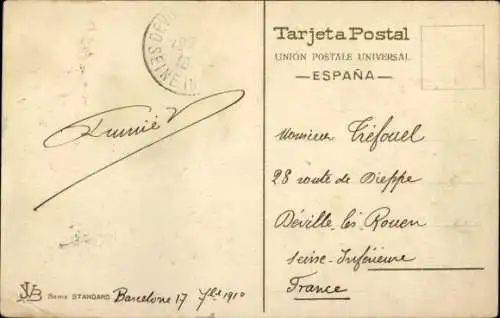 DEVI
SEINE IN
Tarjeta Postal
UNIÓN POSTALE UNIVERSAL
—ESPAÑA—
Monsieur Tréfouel
28 route de Dieppe
Déville lès Rouen
Seine-Inférieure
France
JVB Serie STANDARD Barcelone 17 7bre 1910